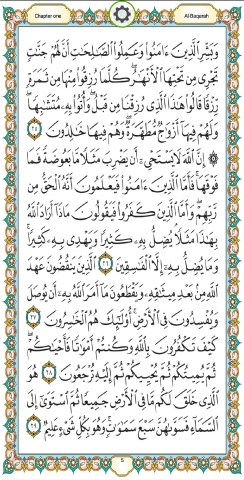 Chapter one
Al-Baqarah
وَبَشِّرِ الَّذِينَ ءَامَنُوا وَعَمِلُوا الصَّـٰلِحَـٰتِ أَنَّ لَهُمْ جَنَّـٰتٍ
تَجْرِى مِن تَحْتِهَا الْأَنْهَـٰرُ كُلَّمَا رُزِقُوا مِنْهَا مِن ثَمَرَةٍ
رِّزْقًا قَالُوا هَـٰذَا الَّذِى رُزِقْنَا مِن قَبْلُ وَأُتُوا بِهِۦ مُتَشَـٰبِهًا
وَلَهُمْ فِيهَا أَزْوَٰجٌ مُّطَهَّرَةٌ وَهُمْ فِيهَا خَـٰلِدُونَ ٢٥
۞ إِنَّ اللَّهَ لَا يَسْتَحْىِۦ أَن يَضْرِبَ مَثَلًا مَّا بَعُوضَةً فَمَا
فَوْقَهَا فَأَمَّا الَّذِينَ ءَامَنُوا فَيَعْلَمُونَ أَنَّهُ الْحَقُّ مِن
رَّبِّهِمْ وَأَمَّا الَّذِينَ كَفَرُوا فَيَقُولُونَ مَاذَا أَرَادَ اللَّهُ
بِهَـٰذَا مَثَلًا يُضِلُّ بِهِۦ كَثِيرًا وَيَهْدِى بِهِۦ كَثِيرًا
وَمَا يُضِلُّ بِهِۦ إِلَّا الْفَـٰسِقِينَ ٢٦ الَّذِينَ يَنقُضُونَ عَهْدَ
اللَّهِ مِن بَعْدِ مِيثَـٰقِهِۦ وَيَقْطَعُونَ مَا أَمَرَ اللَّهُ بِهِۦ أَن يُوصَلَ
وَيُفْسِدُونَ فِى الْأَرْضِ أُولَـٰئِكَ هُمُ الْخَـٰسِرُونَ ٢٧
كَيْفَ تَكْفُرُونَ بِاللَّهِ وَكُنتُمْ أَمْوَٰتًا فَأَحْيَـٰكُمْ
ثُمَّ يُمِيتُكُمْ ثُمَّ يُحْيِيكُمْ ثُمَّ إِلَيْهِ تُرْجَعُونَ ٢٨ هُوَ
الَّذِى خَلَقَ لَكُم مَّا فِى الْأَرْضِ جَمِيعًا ثُمَّ اسْتَوَىٰ إِلَى
السَّمَاءِ فَسَوَّىٰهُنَّ سَبْعَ سَمَـٰوَٰتٍ وَهُوَ بِكُلِّ شَىْءٍ عَلِيمٌ ٢٩
5